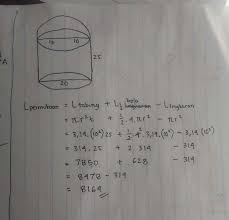 10 10
25
20
L permukaan = L tabung + L ½ bola lingkaran - L lingkaran
= πr²t + ½ . 4πr² - πr²
= 3,14 . (10²) 25 + ½ . 4² . 3,14 (10²) - 3,14 (10²)
= 314 . 25 + 2 . 314 - 314
= 7850 + 628 - 314
= 8478 - 314
= 8164